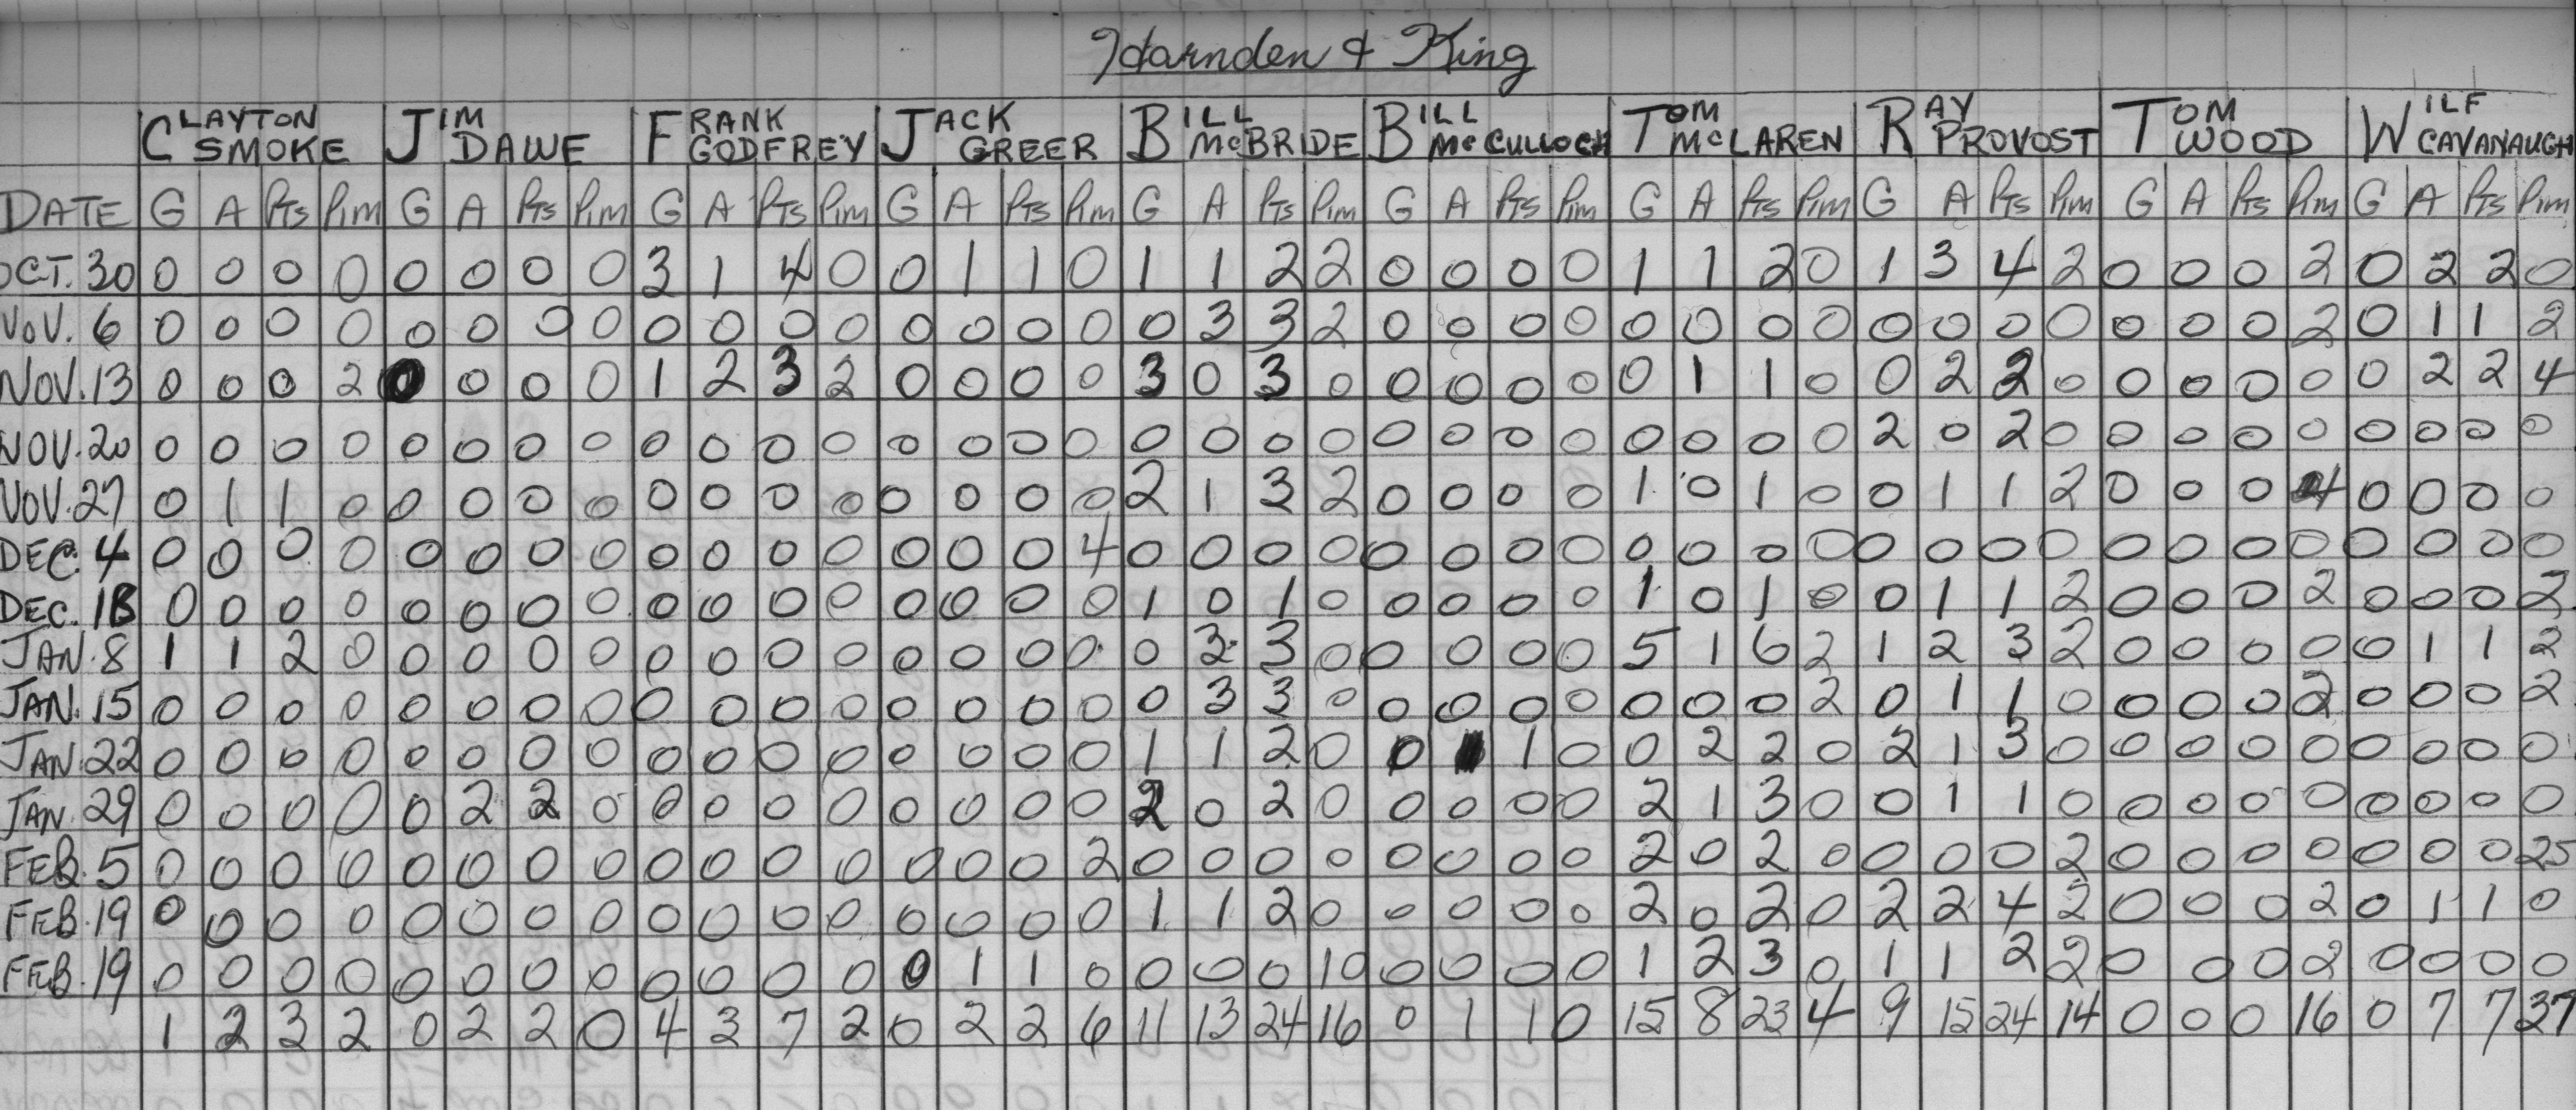 Harnden & King
CLAYTON SMOKE JIM DAWE FRANK GODFREY JACK GREER BILL McBRIDE BILL McCULLOCH TOM McLAREN RAY PROVOST TOM WOOD WILF CAVANAUGH
DATE G A Pts Pim G A Pts Pim G A Pts Pim G A Pts Pim G A Pts Pim G A Pts Pim G A Pts Pim G A Pts Pim G A Pts Pim G A Pts Pim
OCT. 30 0 0 0 0 0 0 0 0 3 1 4 0 0 1 1 0 1 1 2 2 0 0 0 0 1 1 2 0 1 3 4 2 0 0 0 2 0 2 2 0
NOV. 6 0 0 0 0 0 0 0 0 0 0 0 0 0 0 0 0 0 3 3 2 0 0 0 0 0 0 0 0 0 0 0 0 0 0 0 2 0 1 1 2
NOV. 13 0 0 0 2 0 0 0 0 1 2 3 2 0 0 0 0 3 0 3 0 0 0 0 0 0 1 1 0 0 2 2 0 0 0 0 0 0 2 2 4
NOV. 20 0 0 0 0 0 0 0 0 0 0 0 0 0 0 0 0 0 0 0 0 0 0 0 0 0 0 0 0 2 0 2 0 0 0 0 0 0 0 0 0
NOV. 27 0 1 1 0 0 0 0 0 0 0 0 0 0 0 0 0 2 1 3 2 0 0 0 0 1 0 1 0 0 1 1 2 0 0 0 4 0 0 0 0
DEC. 4 0 0 0 0 0 0 0 0 0 0 0 0 0 0 0 4 0 0 0 0 0 0 0 0 0 0 0 0 0 0 0 0 0 0 0 0 0 0 0 0
DEC. 18 0 0 0 0 0 0 0 0 0 0 0 0 0 0 0 0 1 0 1 0 0 0 0 0 1 0 1 0 0 1 1 2 0 0 0 2 0 0 0 2
JAN. 8 1 1 2 0 0 0 0 0 0 0 0 0 0 0 0 0 0 3 3 0 0 0 0 0 5 1 6 2 1 2 3 2 0 0 0 0 0 1 1 2
JAN. 15 0 0 0 0 0 0 0 0 0 0 0 0 0 0 0 0 0 3 3 0 0 0 0 0 0 0 0 2 0 1 1 0 0 0 0 2 0 0 0 2
JAN. 22 0 0 0 0 0 0 0 0 0 0 0 0 0 0 0 0 1 1 2 0 0 1 1 0 0 2 2 0 2 1 3 0 0 0 0 0 0 0 0 0
JAN. 29 0 0 0 0 0 2 2 0 0 0 0 0 0 0 0 0 2 0 2 0 0 0 0 0 2 1 3 0 0 1 1 0 0 0 0 0 0 0 0 0
FEB. 5 0 0 0 0 0 0 0 0 0 0 0 0 0 0 0 2 0 0 0 0 0 0 0 0 2 0 2 0 0 0 0 2 0 0 0 0 0 0 0 25
FEB. 19 0 0 0 0 0 0 0 0 0 0 0 0 0 0 0 0 1 1 2 0 0 0 0 0 2 0 2 0 2 2 4 2 0 0 0 2 0 1 1 0
FEB. 19 0 0 0 0 0 0 0 0 0 0 0 0 0 1 1 0 0 0 0 10 0 0 0 0 1 2 3 0 1 1 2 2 0 0 0 2 0 0 0 0
1 2 3 2 0 2 2 0 4 3 7 2 0 2 2 6 11 13 24 16 0 1 1 0 15 8 23 4 9 15 24 14 0 0 0 16 0 7 7 37